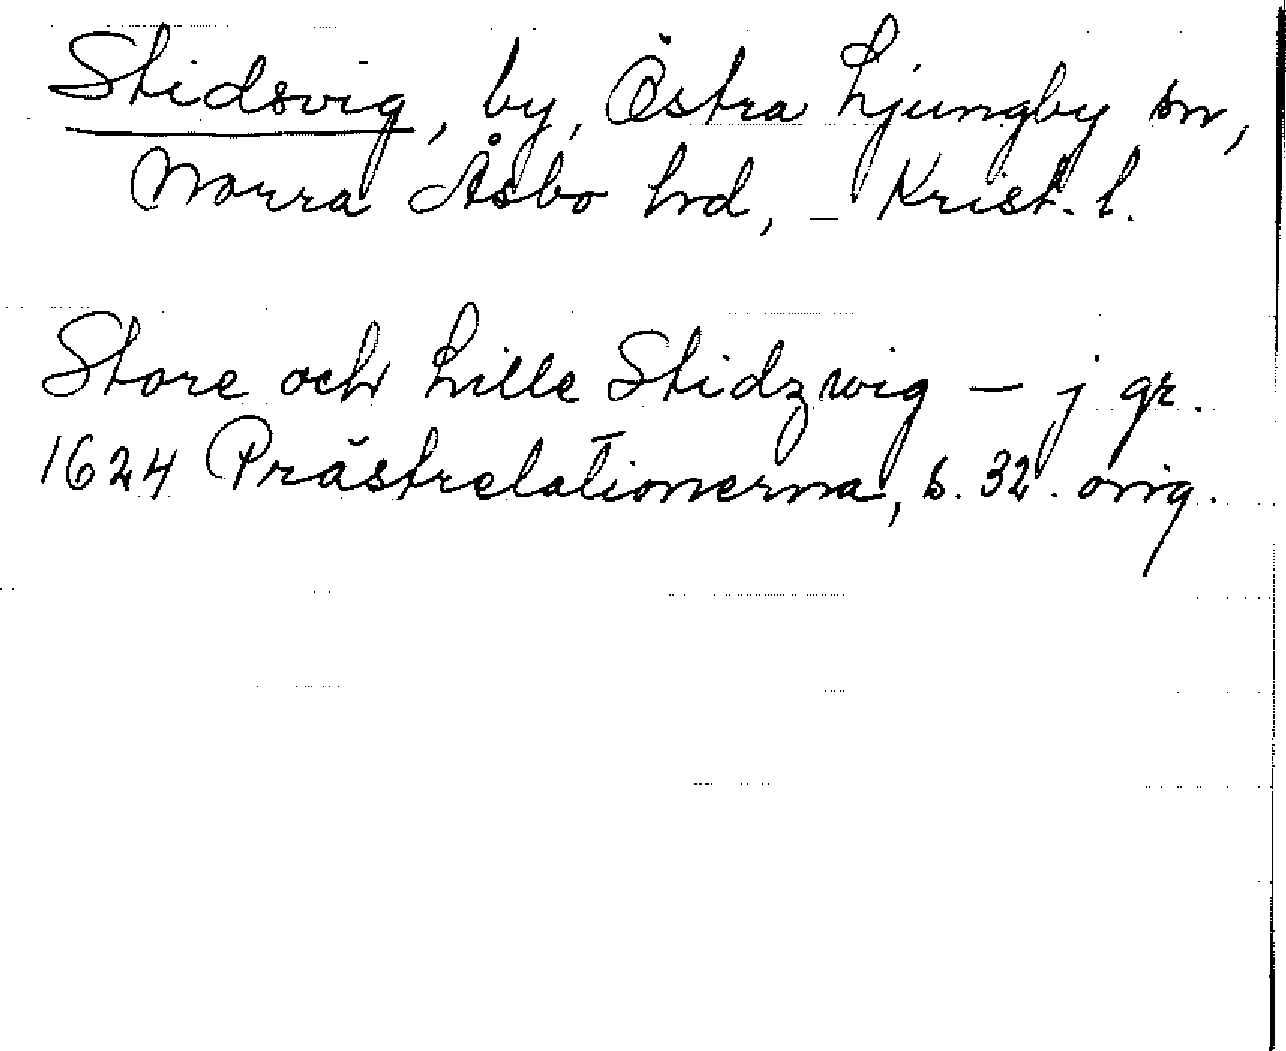 Stidsvig, by, Östra Ljungby sn,
Norra Åsbo hd, - Krist. l.
Store och Lille Stidzwig - j gr.
1624 Prästrelationerna, s. 32. orig.